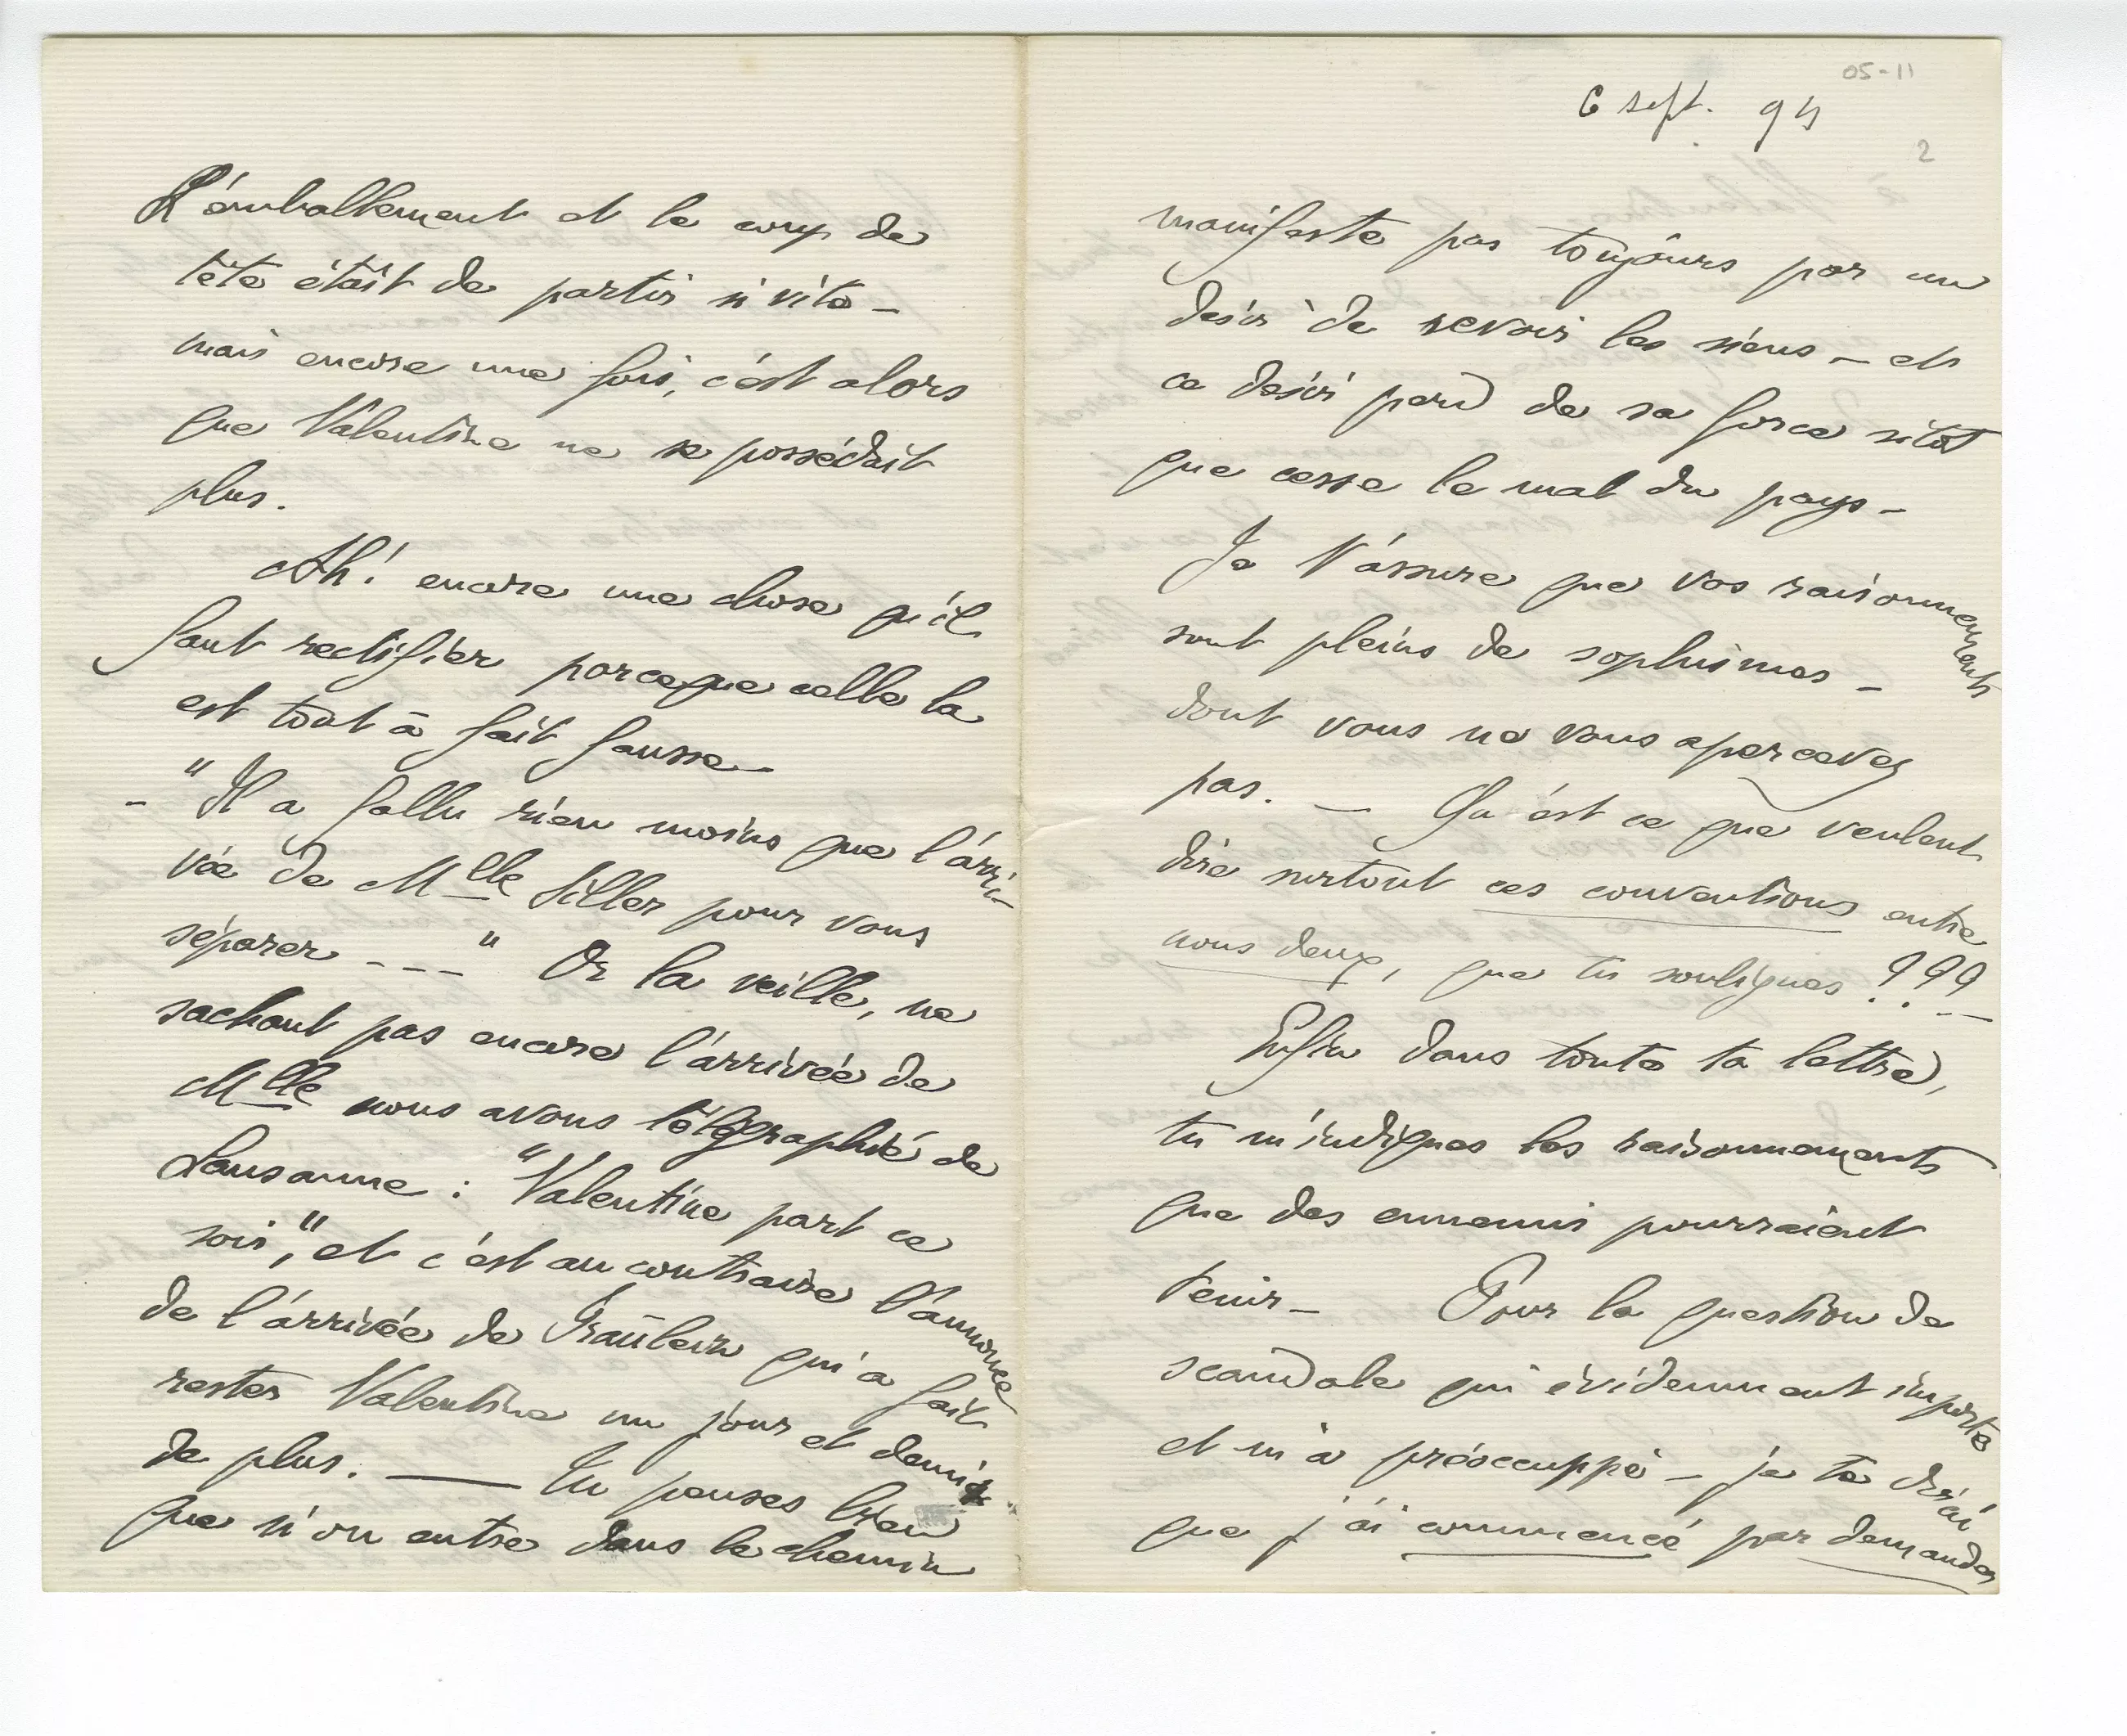 L'emballement et le coup de
tête était de partir si vite –
mais encore une fois, c'est alors
que Valentine ne se possédait
plus.
Ah! encore une chose qu'il
faut rectifier parceque celle la
est tout à fait fausse –
– "Il a fallu rien moins que l'arri-
vée de Mlle Siller pour vous
séparer – – – " Or la veille, ne
sachant pas encore l'arrivée de
Mlle nous avons télégraphié de
Lausanne : "Valentine part ce
soir", et c'est au contraire l'annonce
de l'arrivée de Fraülein qui a fait
rester Valentine un jour et demi
de plus. — Tu penses bien
que si on entre dans le chemin
05-11
6 sept. 94
2
manifeste pas toujours par un
désir de revoir les siens – et
ce désir perd de sa force sitôt
que cesse le mal du pays –
Je t'assure que vos raisonnements
sont pleins de sophismes –
dont vous ne vous apercevez
pas. — Qu'est ce que veulent
dire surtout ces conventions entre
nous deux, que tu soulignes ??? –
Enfin dans toute ta lettre,
tu m'indiques les raisonnements
que des ennemis pourraient
tenir – Pour la question de
scandale qui évidemment importe
et m'a préoccuppé – je te dirai
que j'ai commencé par demander